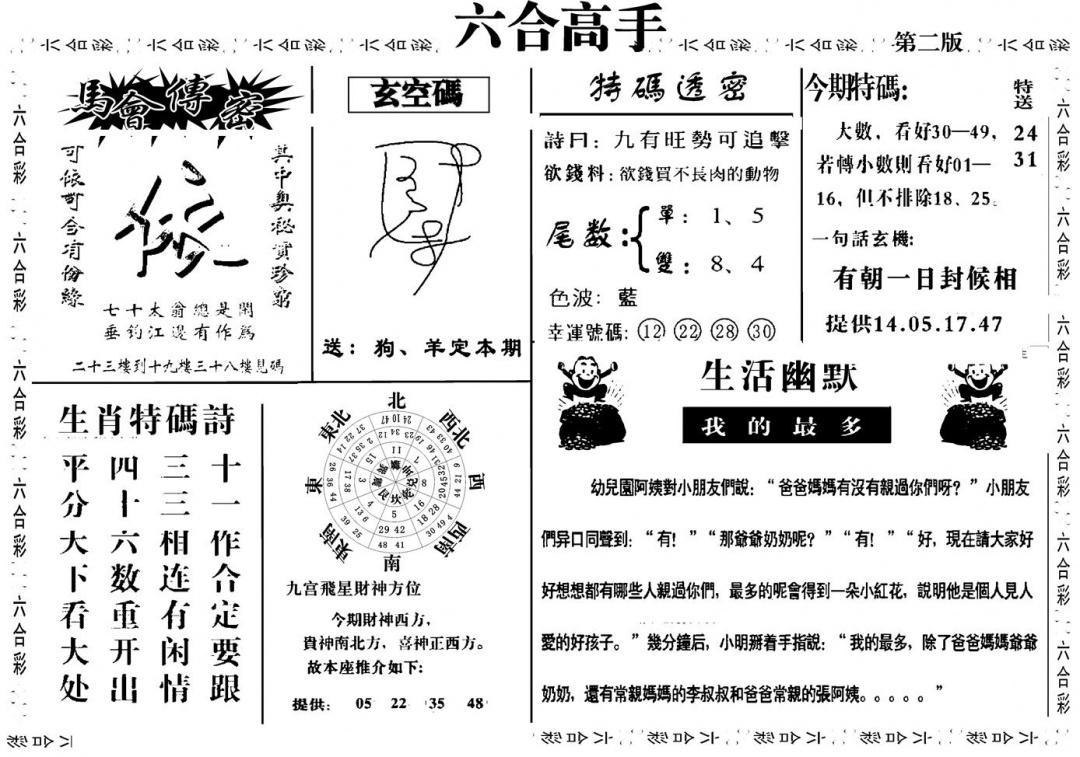 六合高手
第二版
馬會傳密
可依可舍有份緣
依
其中奧秘實珍窮
七十太翁總是閑
垂釣江邊有作為
二十三樓到十九樓三十八樓見碼
玄空碼
送：狗、羊定本期
特碼透密
詩曰：九有旺勢可追擊
欲錢料：欲錢買不長肉的動物
尾数：
單：1、5
雙：8、4
色波：藍
幸運號碼：12 22 28 30
今期特碼：
特送
24
31
大數，看好30—49，
若轉小數則看好01—
16，但不排除18、25。
一句話玄機：
有朝一日封候相
提供14.05.17.47
生肖特碼詩
十一作合定要跟
三三相连有闲情
四十六数重开出
平分大下看大处
北
西北
西
西南
南
東南
東
東北
九宫飛星財神方位
今期財神西方，
貴神南北方，喜神正西方。
故本座推介如下：
提供： 05 22 35 48
生活幽默
我的最多
幼兒園阿姨對小朋友們說：“爸爸媽媽有沒有親過你們呀？”小朋友
們异口同聲到：“有！”“那爺爺奶奶呢？”“有！”“好，現在請大家好
好想想都有哪些人親過你們，最多的呢會得到一朵小紅花，說明他是個人見人
愛的好孩子。”幾分鐘后，小明掰着手指說：“我的最多，除了爸爸媽媽爺爺
奶奶，還有常親媽媽的李叔叔和爸爸常親的張阿姨。。。。。”
六合彩 六合彩 六合彩 六合彩 六合彩